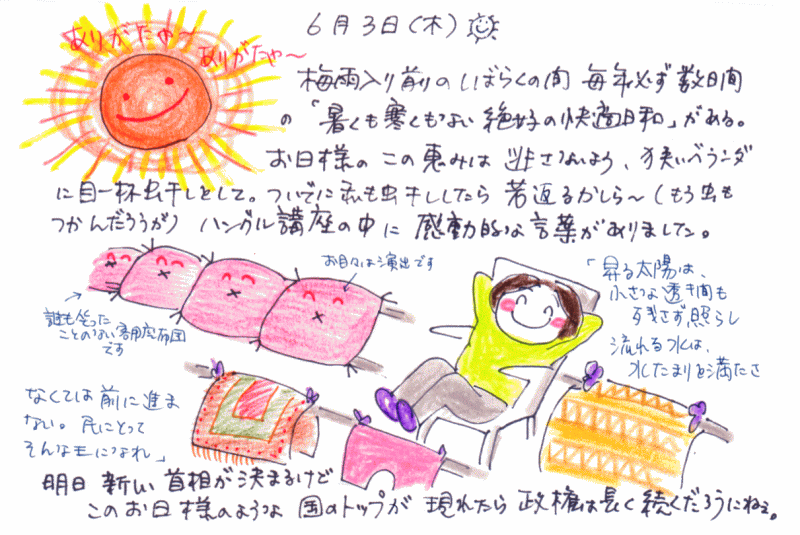 6月3日(木)
ありがたや～
ありがたや～
梅雨入り前のしばらくの間 毎年必ず数日間
の「暑くも寒くもない絶好の快適日和」がある。
お日様の この恵みは 逃さないよう、狭いベランダ
に目一杯虫干しとして。ついでに私も虫干ししたら 若返るかしら～(もう虫も
つかんだろうが) ハングル講座の中に 感動的な言葉がありました。
お目々は演出です
誰も坐った
ことのない客用座布団
です
「昇る太陽は、
小さな透き間も
残さず照らし
流れる水は、
水たまりを満たさ
なくては前に進ま
ない。民にとって
そんな王になれ」
明日 新しい 首相が決まるけど
このお日様のような 国のトップが 現れたら 政権は長く続くだろうにねぇ。